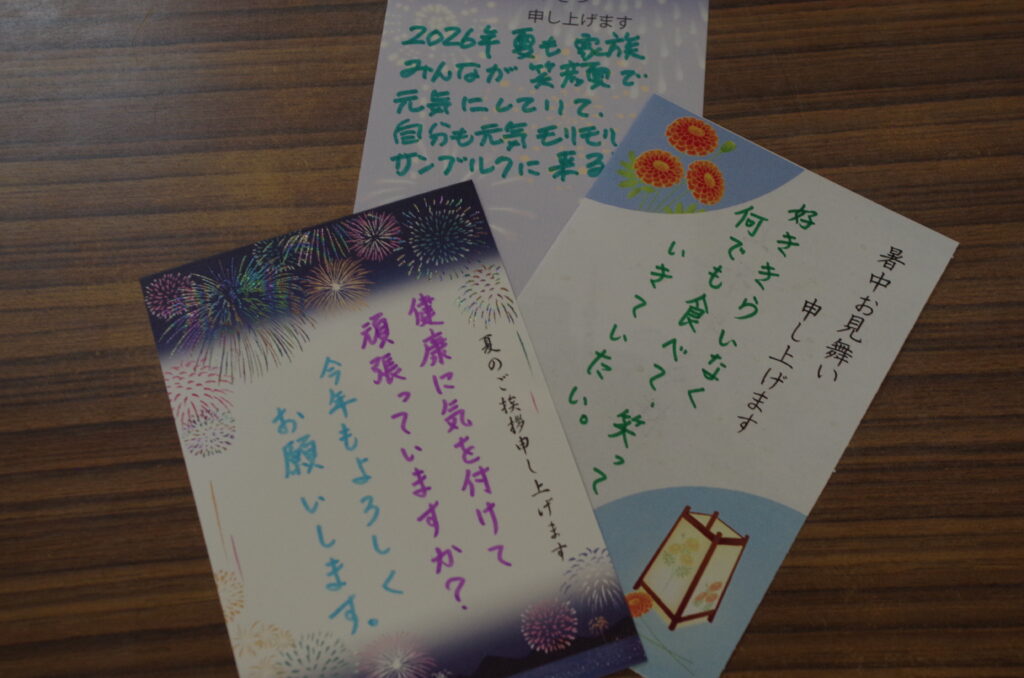 申し上げます
2026年夏も家族
みんなが笑顔で
元気にしていて、
自分も元気モリモリ
サンブルクに来る
暑中お見舞い
申し上げます
好ききらいなく
何でも食べて、笑って
いきていたい。
夏のご挨拶申し上げます
健康に気を付けて
頑張っていますか?
今年もよろしく
お願いします。